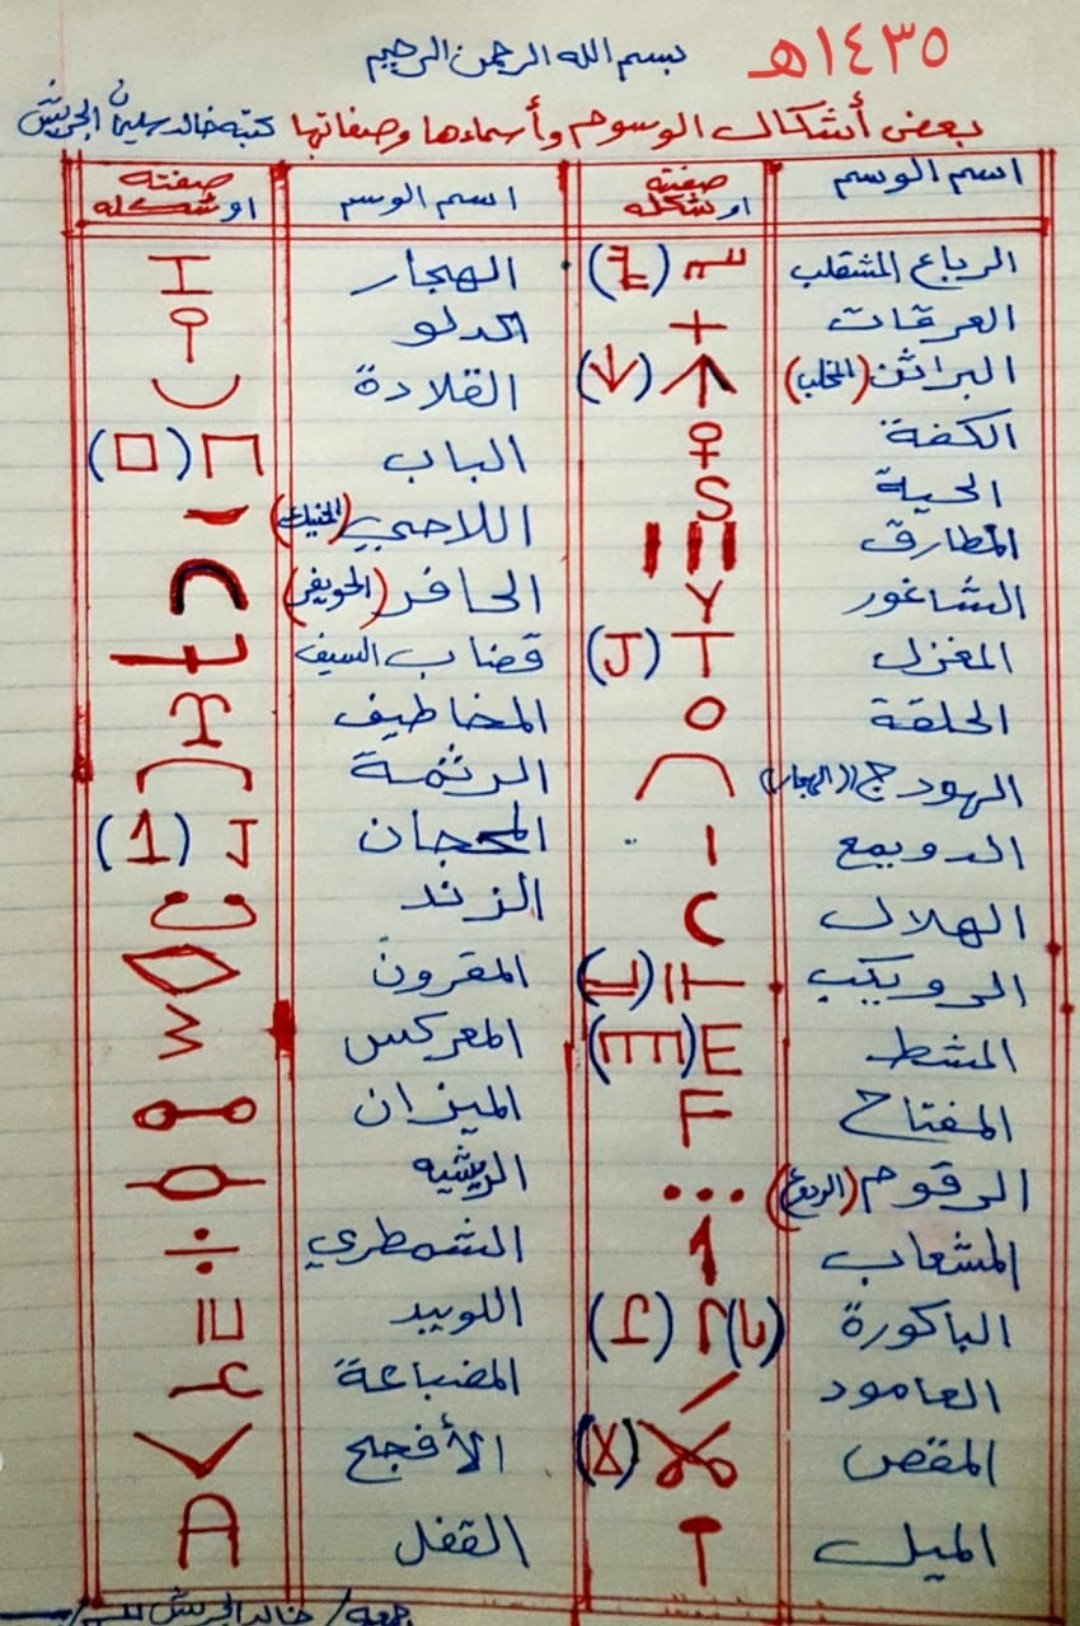 ١٤٣٥هـ
بسم الله الرحمن الرحيم
بعض أشكال الوسوم وأسماءها وصفاتها كتبه خالد سليمان الجريش
اسم الوسم صفته او شكله اسم الوسم صفته او شكله
الرباع المشقلب الهجار
العرقات الدلو
البراثن (المخلب) القلادة
الكفة الباب
الحية اللاحي (الحنيك)
المطارق الحافر (الحويفر)
الشاغور قضاب السيف
المغزل المخاطيف
الحلقة الرثمة
الهودج المحجان
الدويمع الزند
الهلال المقرون
الرويكب المعركس
المشط الميزان
المفتاح الريشيه
الرقوم الشمطري
المشعاب اللوبيد
الباكورة المضباعة
العامود الأفجح
المقص القفل
الميل
جمعه / خالد الجريش